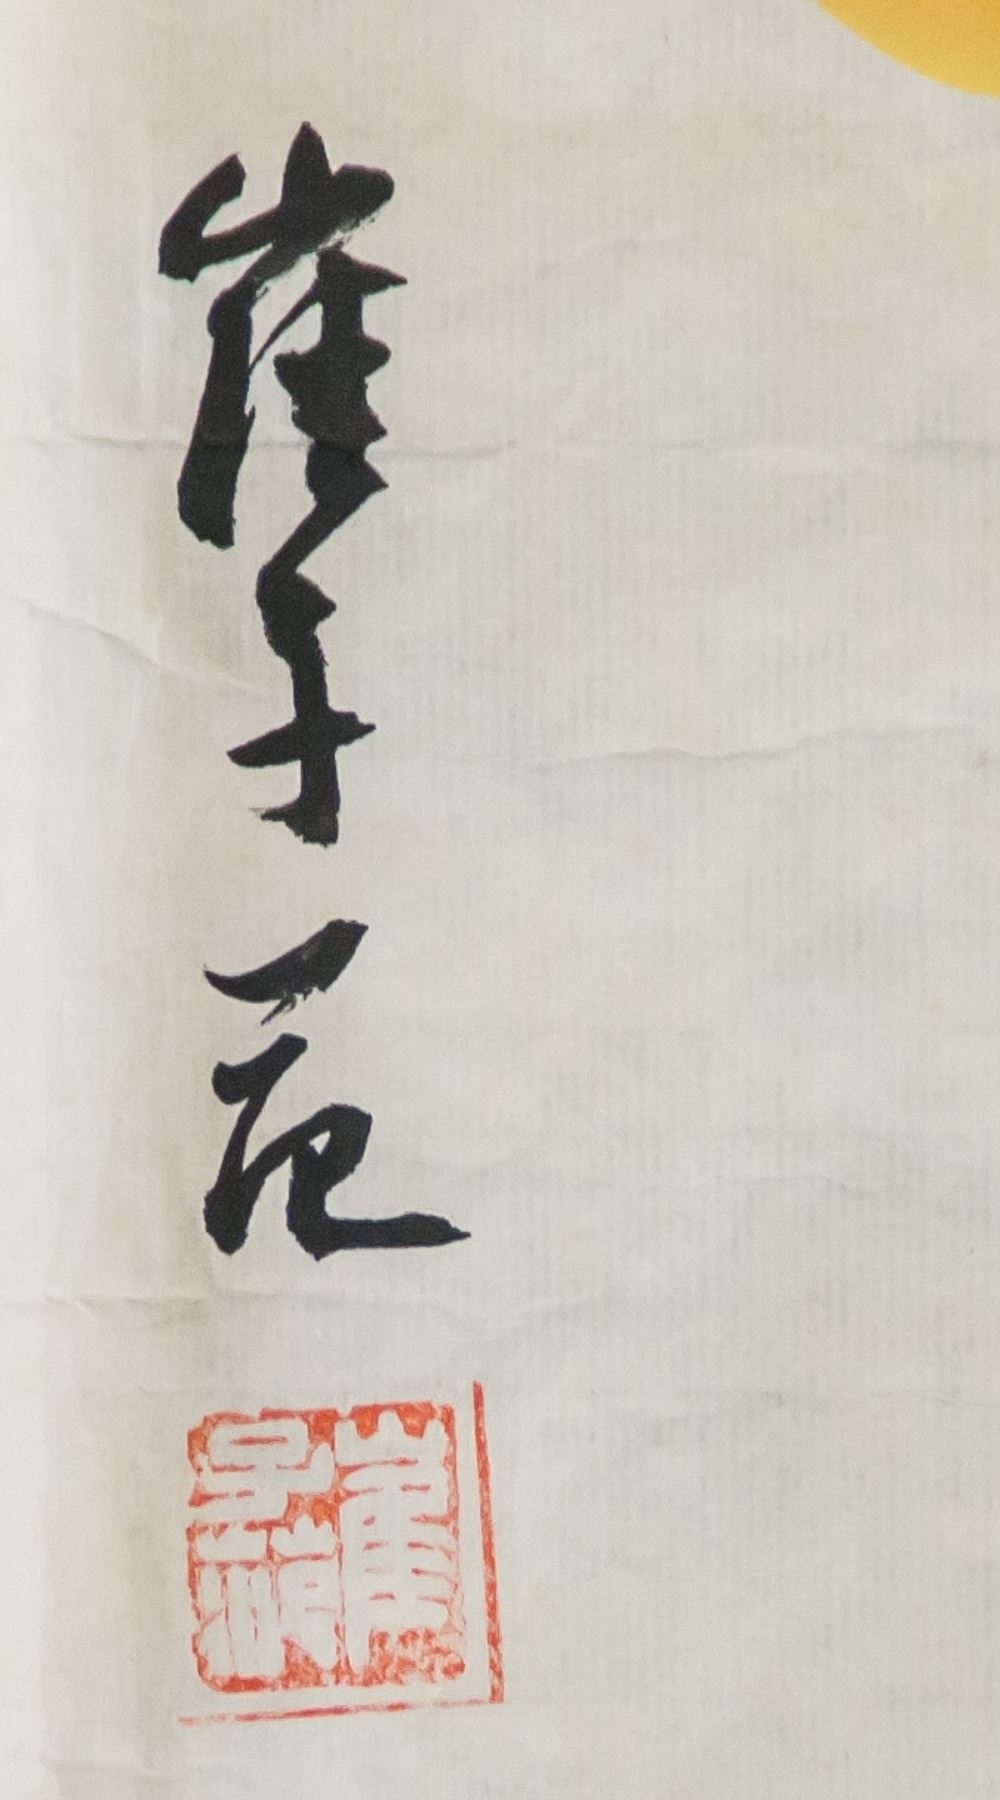 崔子范
崔子范